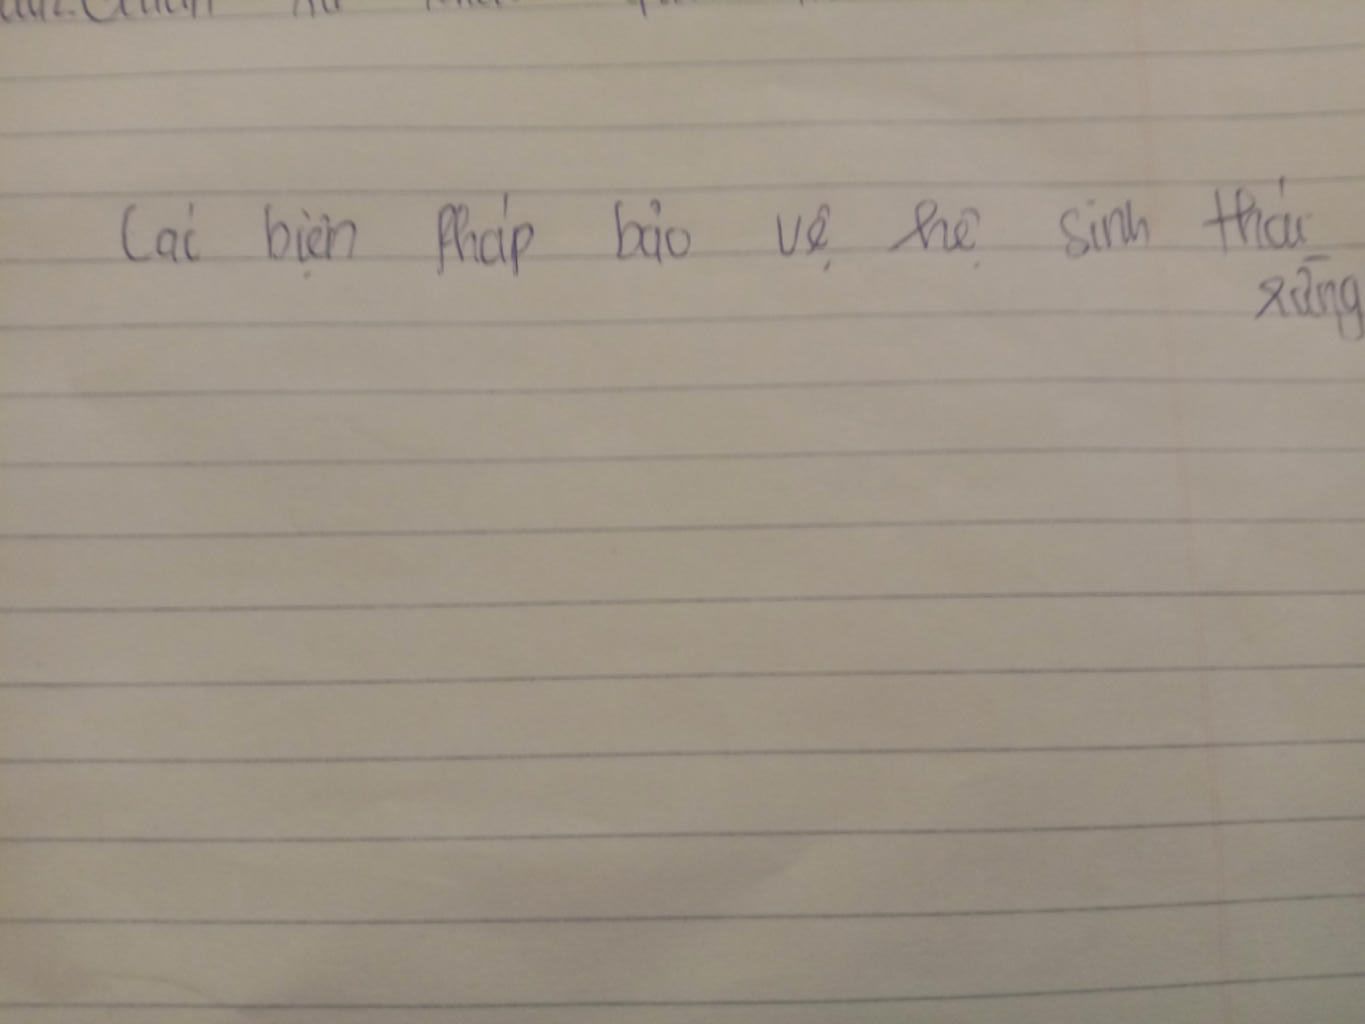 Các biện Pháp bảo vệ hệ sinh thái
rừng